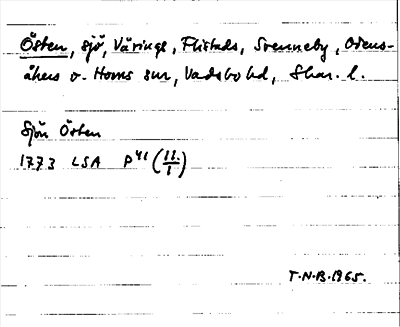 Östen, sjö, Värings, Flistads, Svenneby, Odens-
åkers o. Horns snr, Vadsbo hd, Skar. l.
Sjön Östen
1773 LSA P41 (11:/1)
T.N.B. 1965.